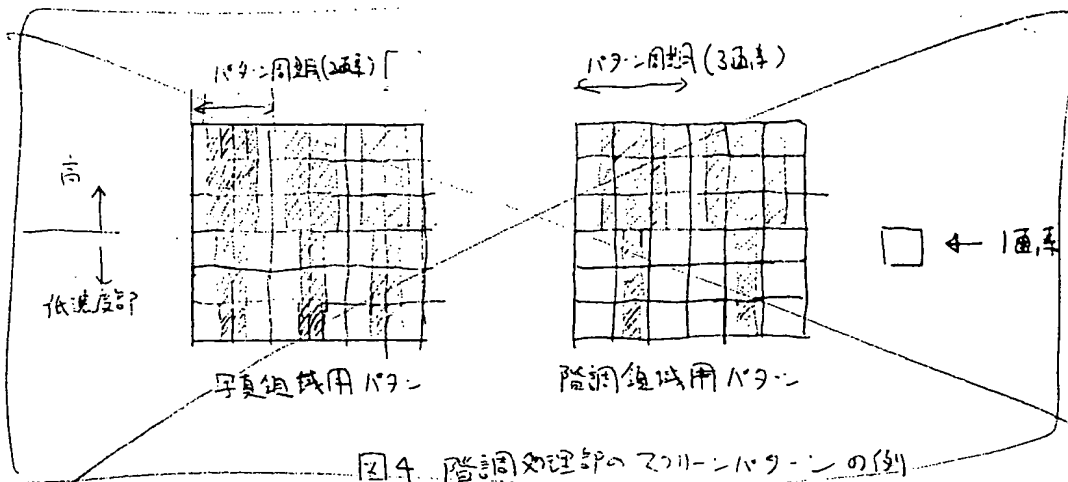 パターン周期(2画素)
パターン周期(3画素)
高
低濃度部
1画素
写真領域用パタン
階調領域用パタン
図4 階調処理部のスクリーンパターンの例